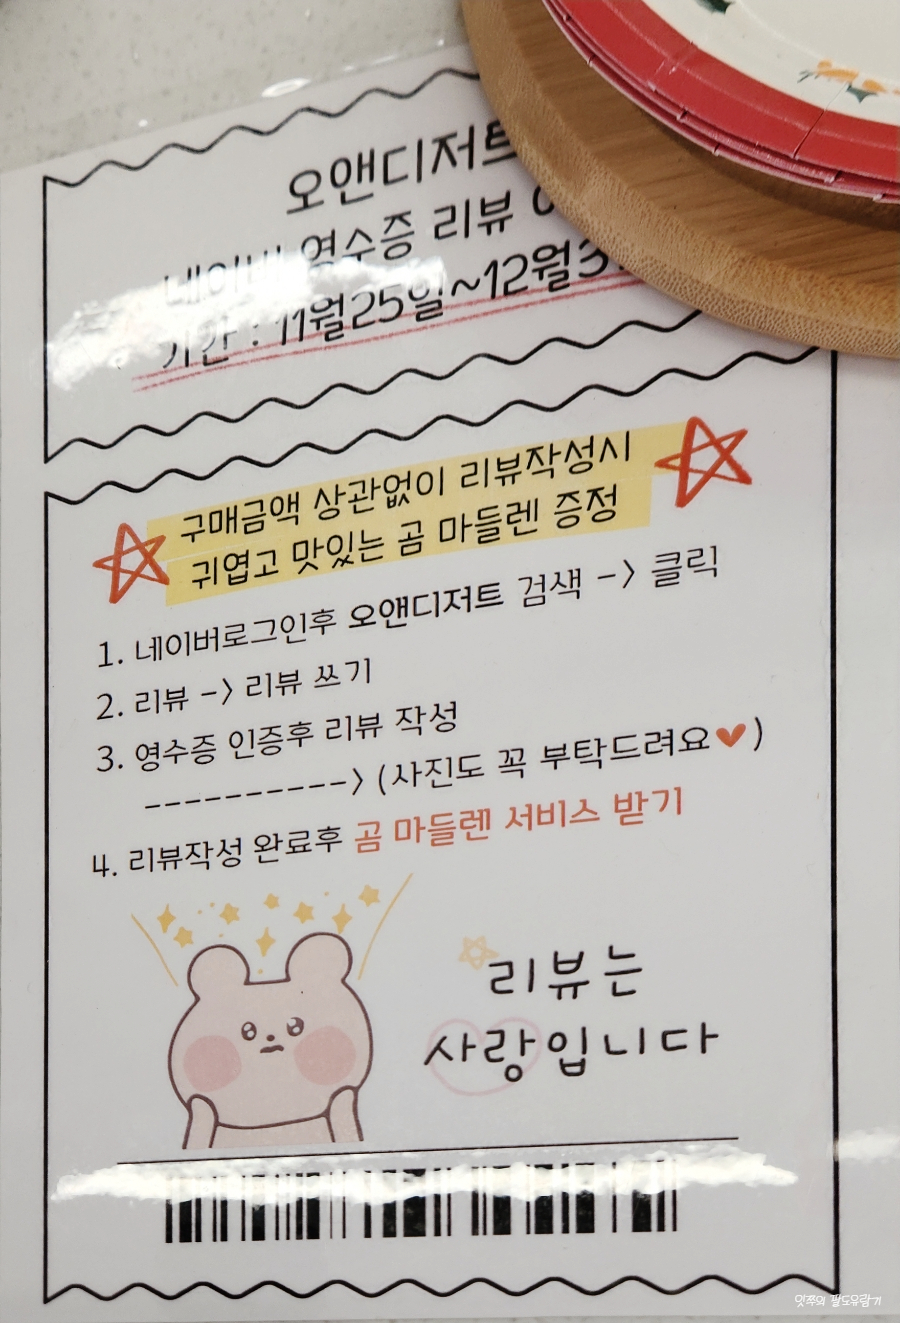 오앤디저트
네이버 영수증 리뷰
기간 : 11월25일~12월3
구매금액 상관없이 리뷰작성시
귀엽고 맛있는 곰 마들렌 증정
1. 네이버로그인후 오앤디저트 검색 -> 클릭
2. 리뷰 -> 리뷰 쓰기
3. 영수증 인증후 리뷰 작성
----------> (사진도 꼭 부탁드려요♥)
4. 리뷰작성 완료후 곰 마들렌 서비스 받기
리뷰는
사랑입니다
잇쪼의 팔도유람기